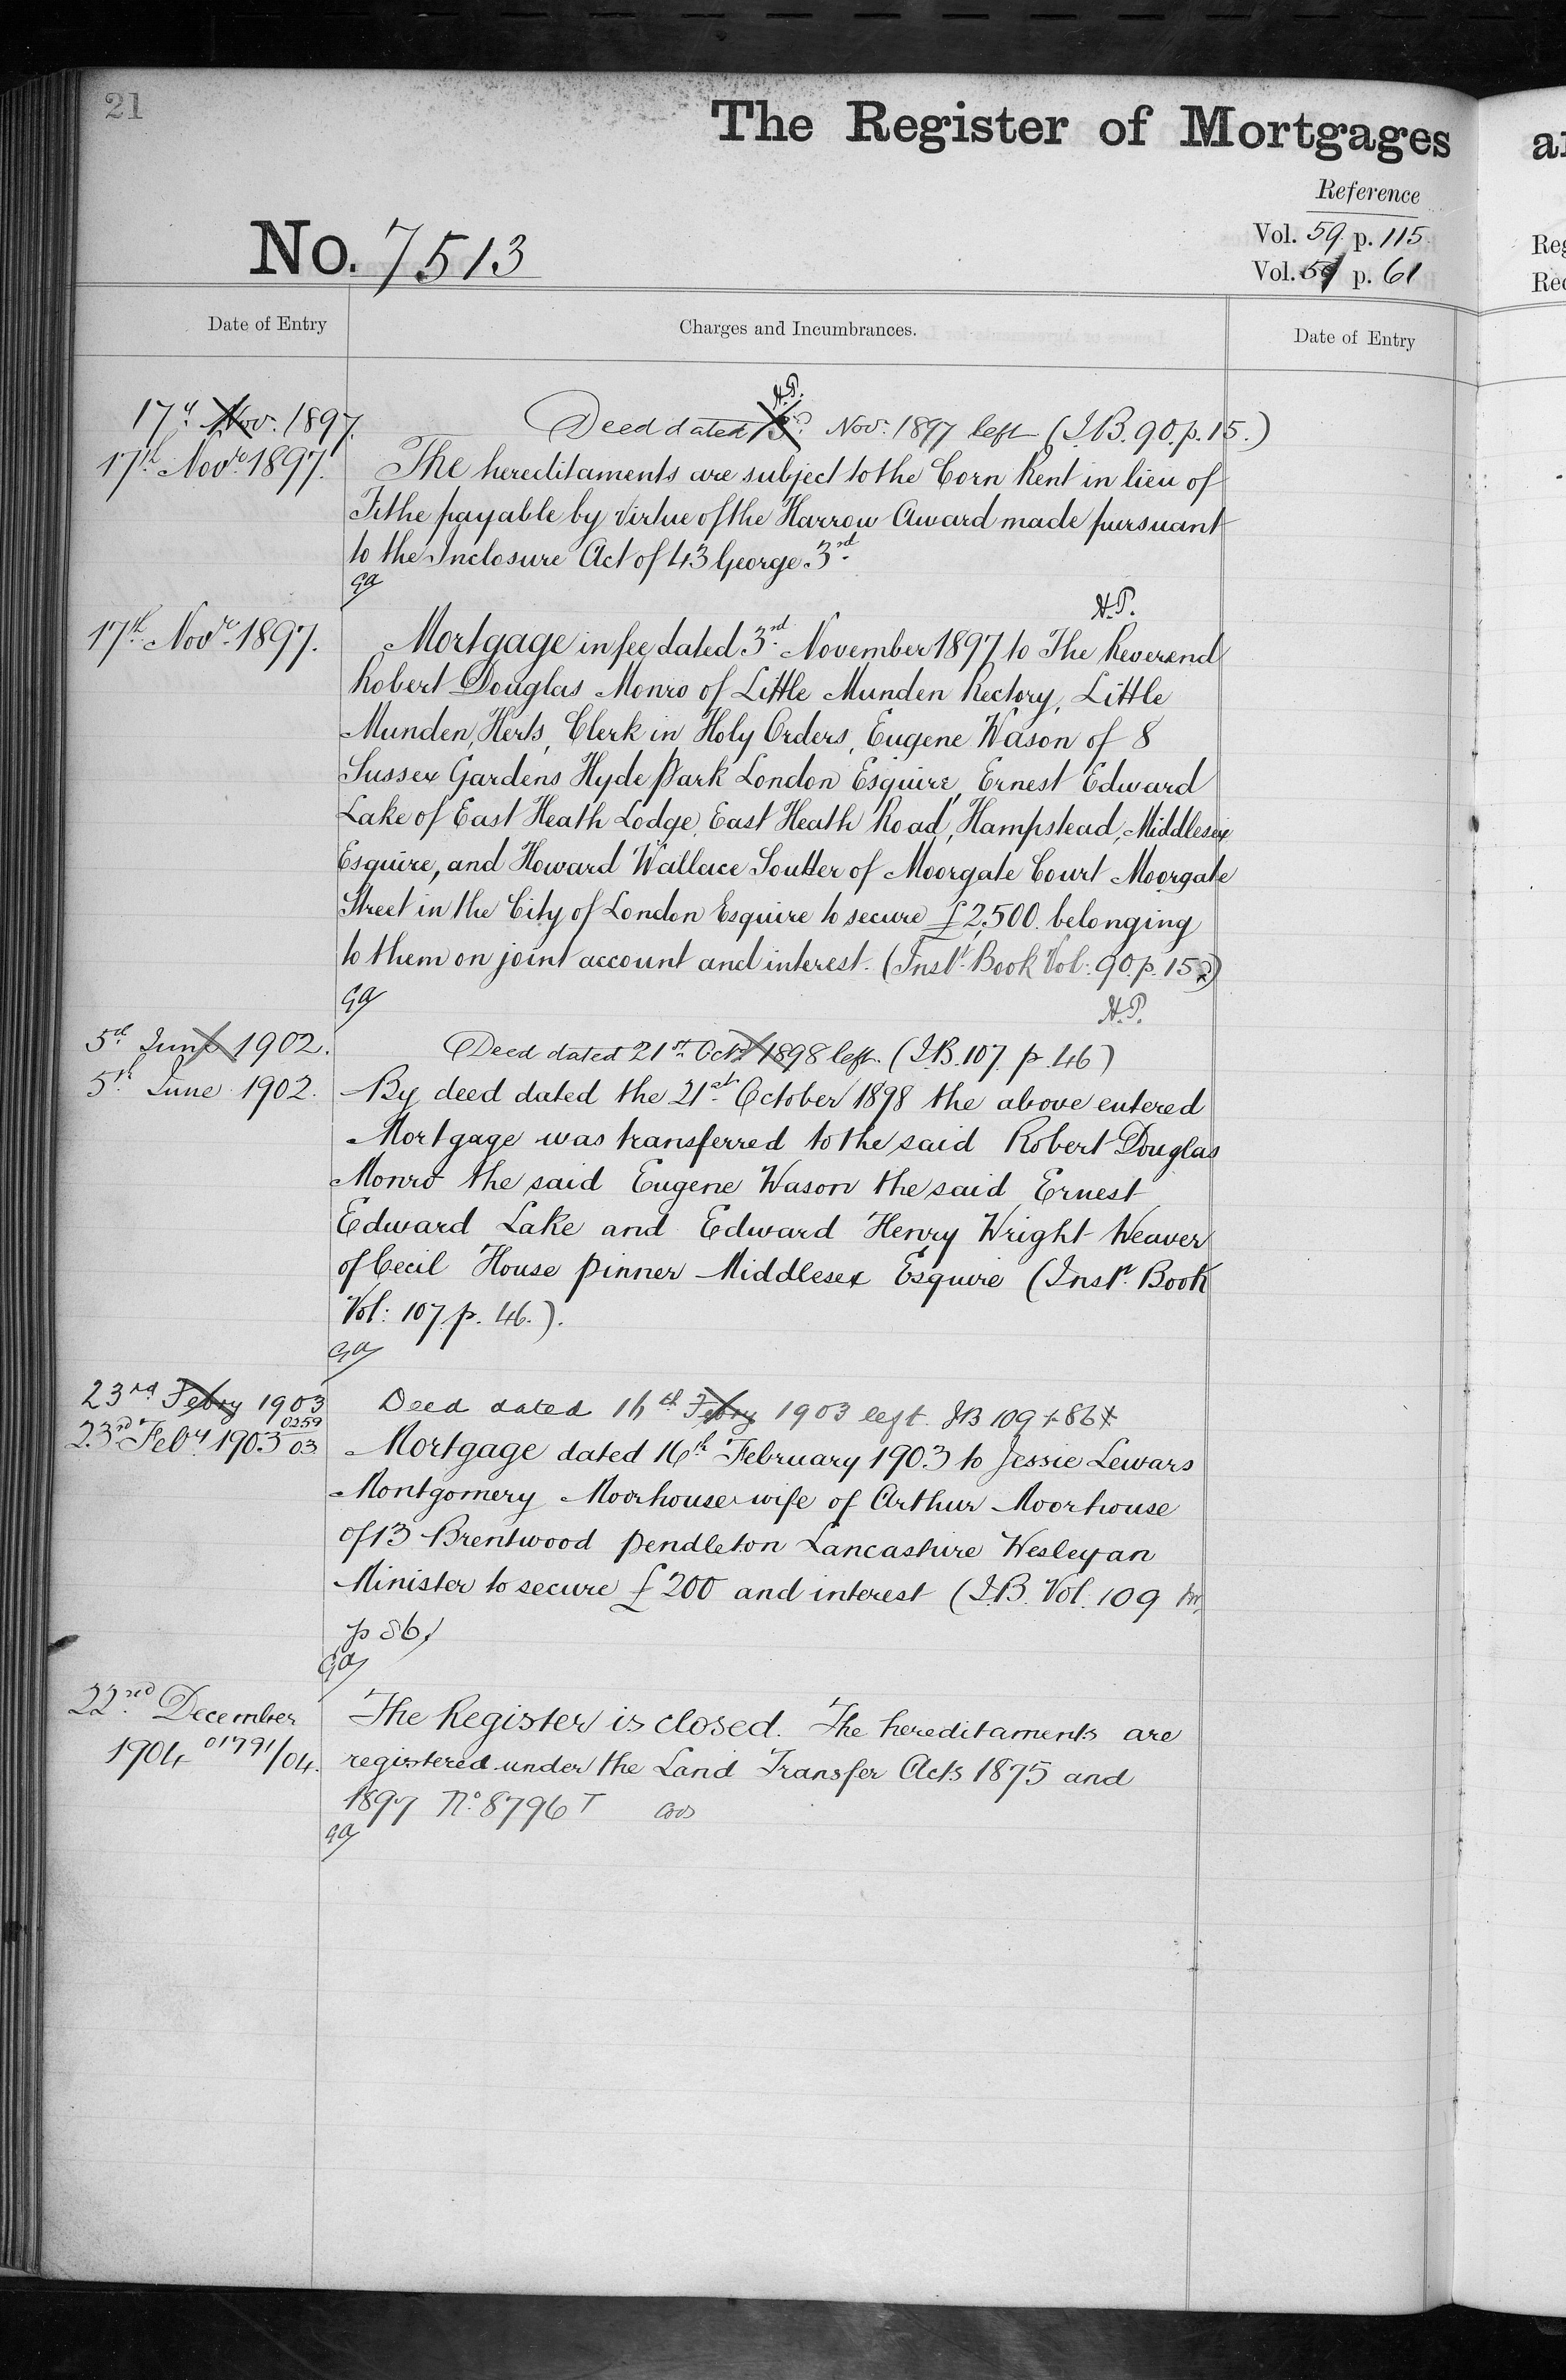 21
The Register of Mortgages
Reference
Vol. 59 p. 115.
No. 7513
Vol. 59 p. 61
Date of Entry
Charges and Incumbrances.
Date of Entry
H.P.
17th Nov. 1897.
Deed dated 3rd Nov. 1897 left (I.B. 90. p. 15.)
17th Novr. 1897.
The hereditaments are subject to the Corn Rent in lieu of
Tithe payable by virtue of the Harrow Award made pursuant
to the Inclosure Act of 43 George 3rd.
GA
H.P.
17th Novr. 1897.
Mortgage in fee dated 3rd November 1897 to The Reverend
Robert Douglas Monro of Little Munden Rectory, Little
Munden, Herts, Clerk in Holy Orders, Eugene Wason of 8
Sussex Gardens Hyde Park London Esquire, Ernest Edward
Lake of East Heath Lodge, East Heath Road, Hampstead, Middlesex
Esquire, and Howard Wallace Soutter of Moorgate Court Moorgate
Street in the City of London Esquire to secure £2,500. belonging
to them on joint account and interest. (Instt. Book Vol: 90. p. 15.)
GA
H.P.
5th June 1902.
Deed dated 21st Octr. 1898 left. (I.B. 107. p. 46)
5th June 1902.
By deed dated the 21st October 1898 the above entered
Mortgage was transferred to the said Robert Douglas
Monro the said Eugene Wason the said Ernest
Edward Lake and Edward Henry Wright Weaver
of Cecil House Pinner Middlesex Esquire (Instt. Book
Vol: 107. p. 46.).
GA
23rd Febry 1903
Deed dated 16th Febry 1903 left. IB 109 p 86
23rd Feby 1903 0259/03
Mortgage dated 16th February 1903 to Jessie Lewars
Montgomery Moorhouse wife of Arthur Moorhouse
of 13 Brentwood Pendleton Lancashire Wesleyan
Minister to secure £200 and interest (I.B. Vol. 109
p 86)
GA
22nd December
The Register is closed. The hereditaments are
1904 01791/04.
registered under the Land Transfer Acts 1875 and
1897 No. 8796 T
GA